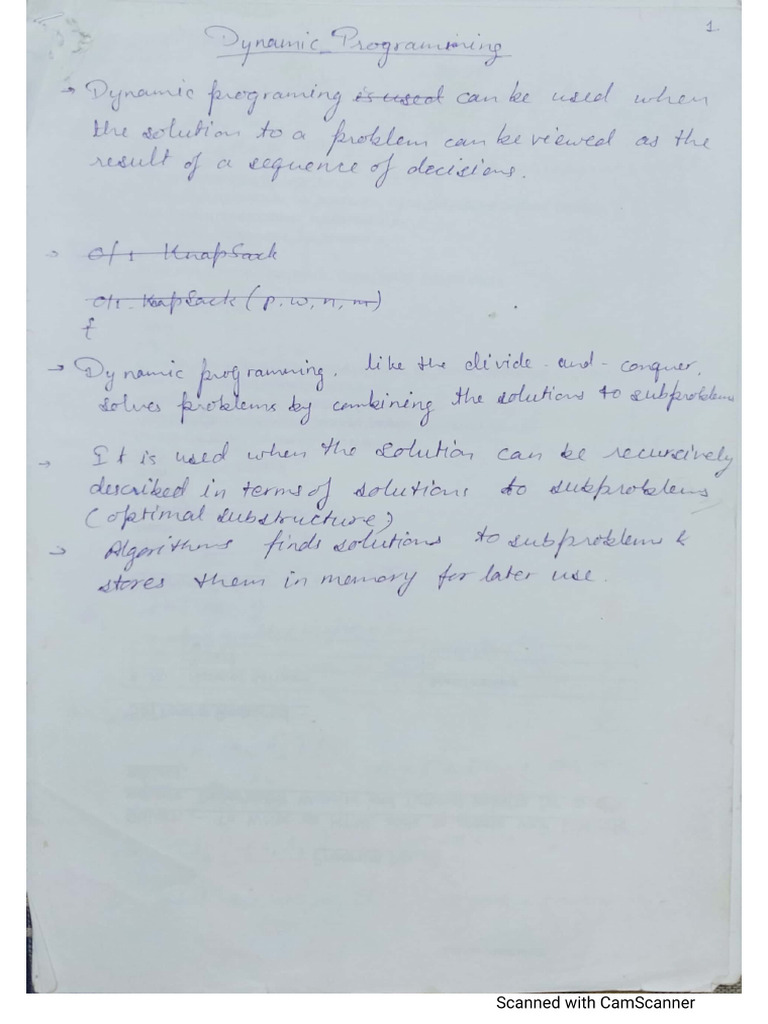 1
Dynamic Programming
→ Dynamic programing is used can be used when
the solution to a problem can be viewed as the
result of a sequence of decisions.
→ 0/1 KnapSack
0/1 KapSack (p, w, n, m)
{
→ Dynamic programming, like the divide-and-conquer,
solves problems by combining the solutions to subproblems
→ It is used when the solution can be recursively
described in terms of solutions to subproblems
(optimal substructure)
→ Algorithms finds solutions to subproblems &
stores them in memory for later use.
Scanned with CamScanner